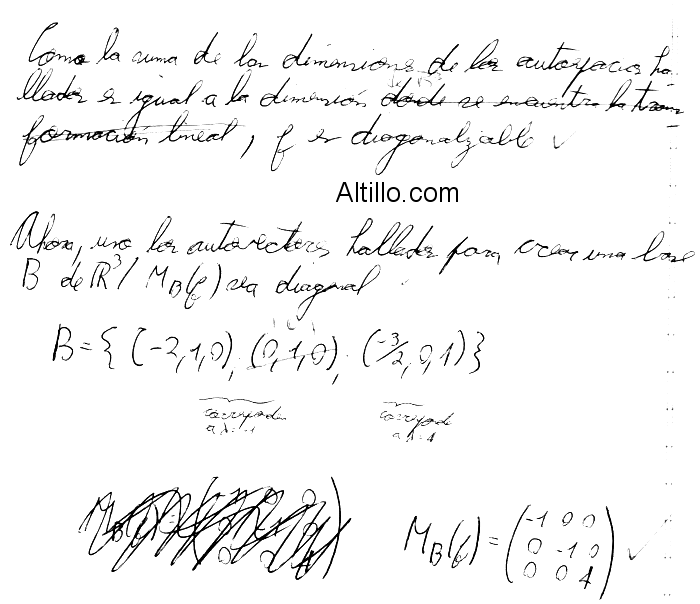 Como la suma de las dimensiones de los autoespacios ha-
llados es igual a la dimensión donde se encuentra la trans-
formación lineal, f es diagonalizable ✓
Altillo.com
Ahora, uso los autovectores hallados para crear una base
B de ℝ³/ M_B(f) sea diagonal
B = { (-2,1,0), (0,1,0), (-3/2,0,1) }
corresponden corresponde
a λ=-1 a λ=4
M_B(f) = (-1 0 0
0 -1 0 ✓
0 0 4)